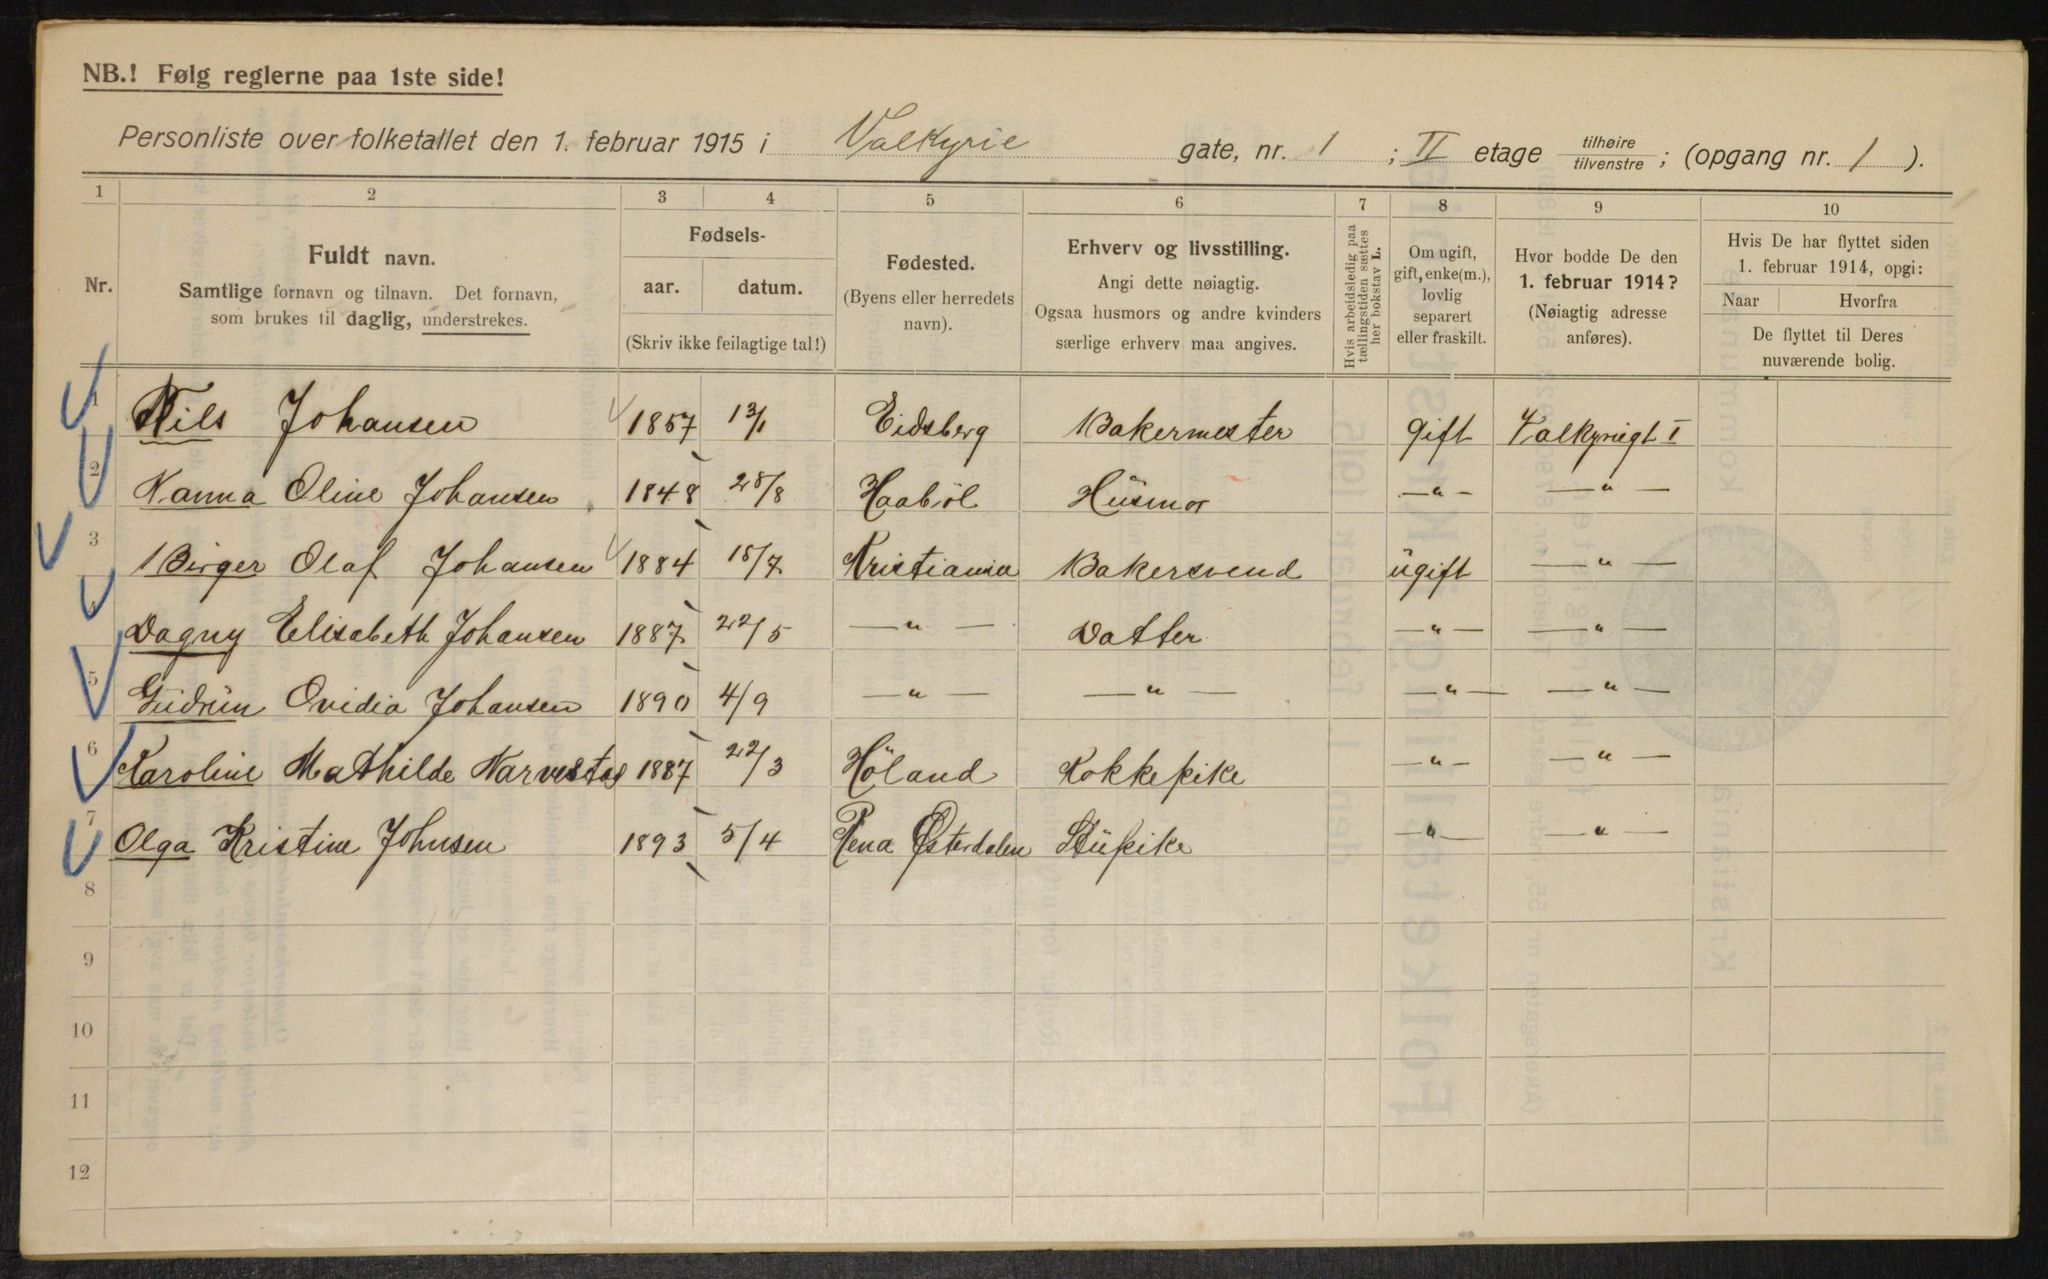 NB.! Følg reglerne paa 1ste side!
Personliste over folketallet den 1. februar 1915 i Valkyrie gate, nr. 1 ; II etage tilhøire / tilvenstre ; (opgang nr. 1 ).
1 2 3 4 5 6 7 8 9 10
Nr.
Fuldt navn.
Samtlige fornavn og tilnavn. Det fornavn,
som brukes til daglig, understrekes.
Fødsels-
aar. datum.
(Skriv ikke feilagtige tal!)
Fødested.
(Byens eller herredets
navn).
Erhverv og livsstilling.
Angi dette nøiagtig.
Ogsaa husmors og andre kvinders
særlige erhverv maa angives.
Hvis arbeidsledig paa
tællingstiden sættes
her bokstav L.
Om ugift,
gift, enke(m.),
lovlig
separert
eller fraskilt.
Hvor bodde De den
1. februar 1914?
(Nøiagtig adresse
anføres).
Hvis De har flyttet siden
1. februar 1914, opgi:
Naar Hvorfra
De flyttet til Deres
nuværende bolig.
1 Nils Johansen 1857 13/1 Eidsberg Bakermester gift Valkyriegt I
2 Nanna Oline Johansen 1848 28/8 Haabøl Husmor —"— —"—
3 Birger Olaf Johansen 1884 18/7 Kristiania Bakersvend ugift —"—
4 Dagny Elisabeth Johansen 1887 22/5 —"— Datter —"— —"—
5 Gudrun Ovidia Johansen 1890 4/9 —"— —"— —"— —"—
6 Karoline Mathilde Narvestad 1887 22/3 Høland Kokkepike —"— —"—
7 Olga Kristine Johnsen 1893 5/4 Rena Østerdalen Stupike —"— —"—
8
9
10
11
12